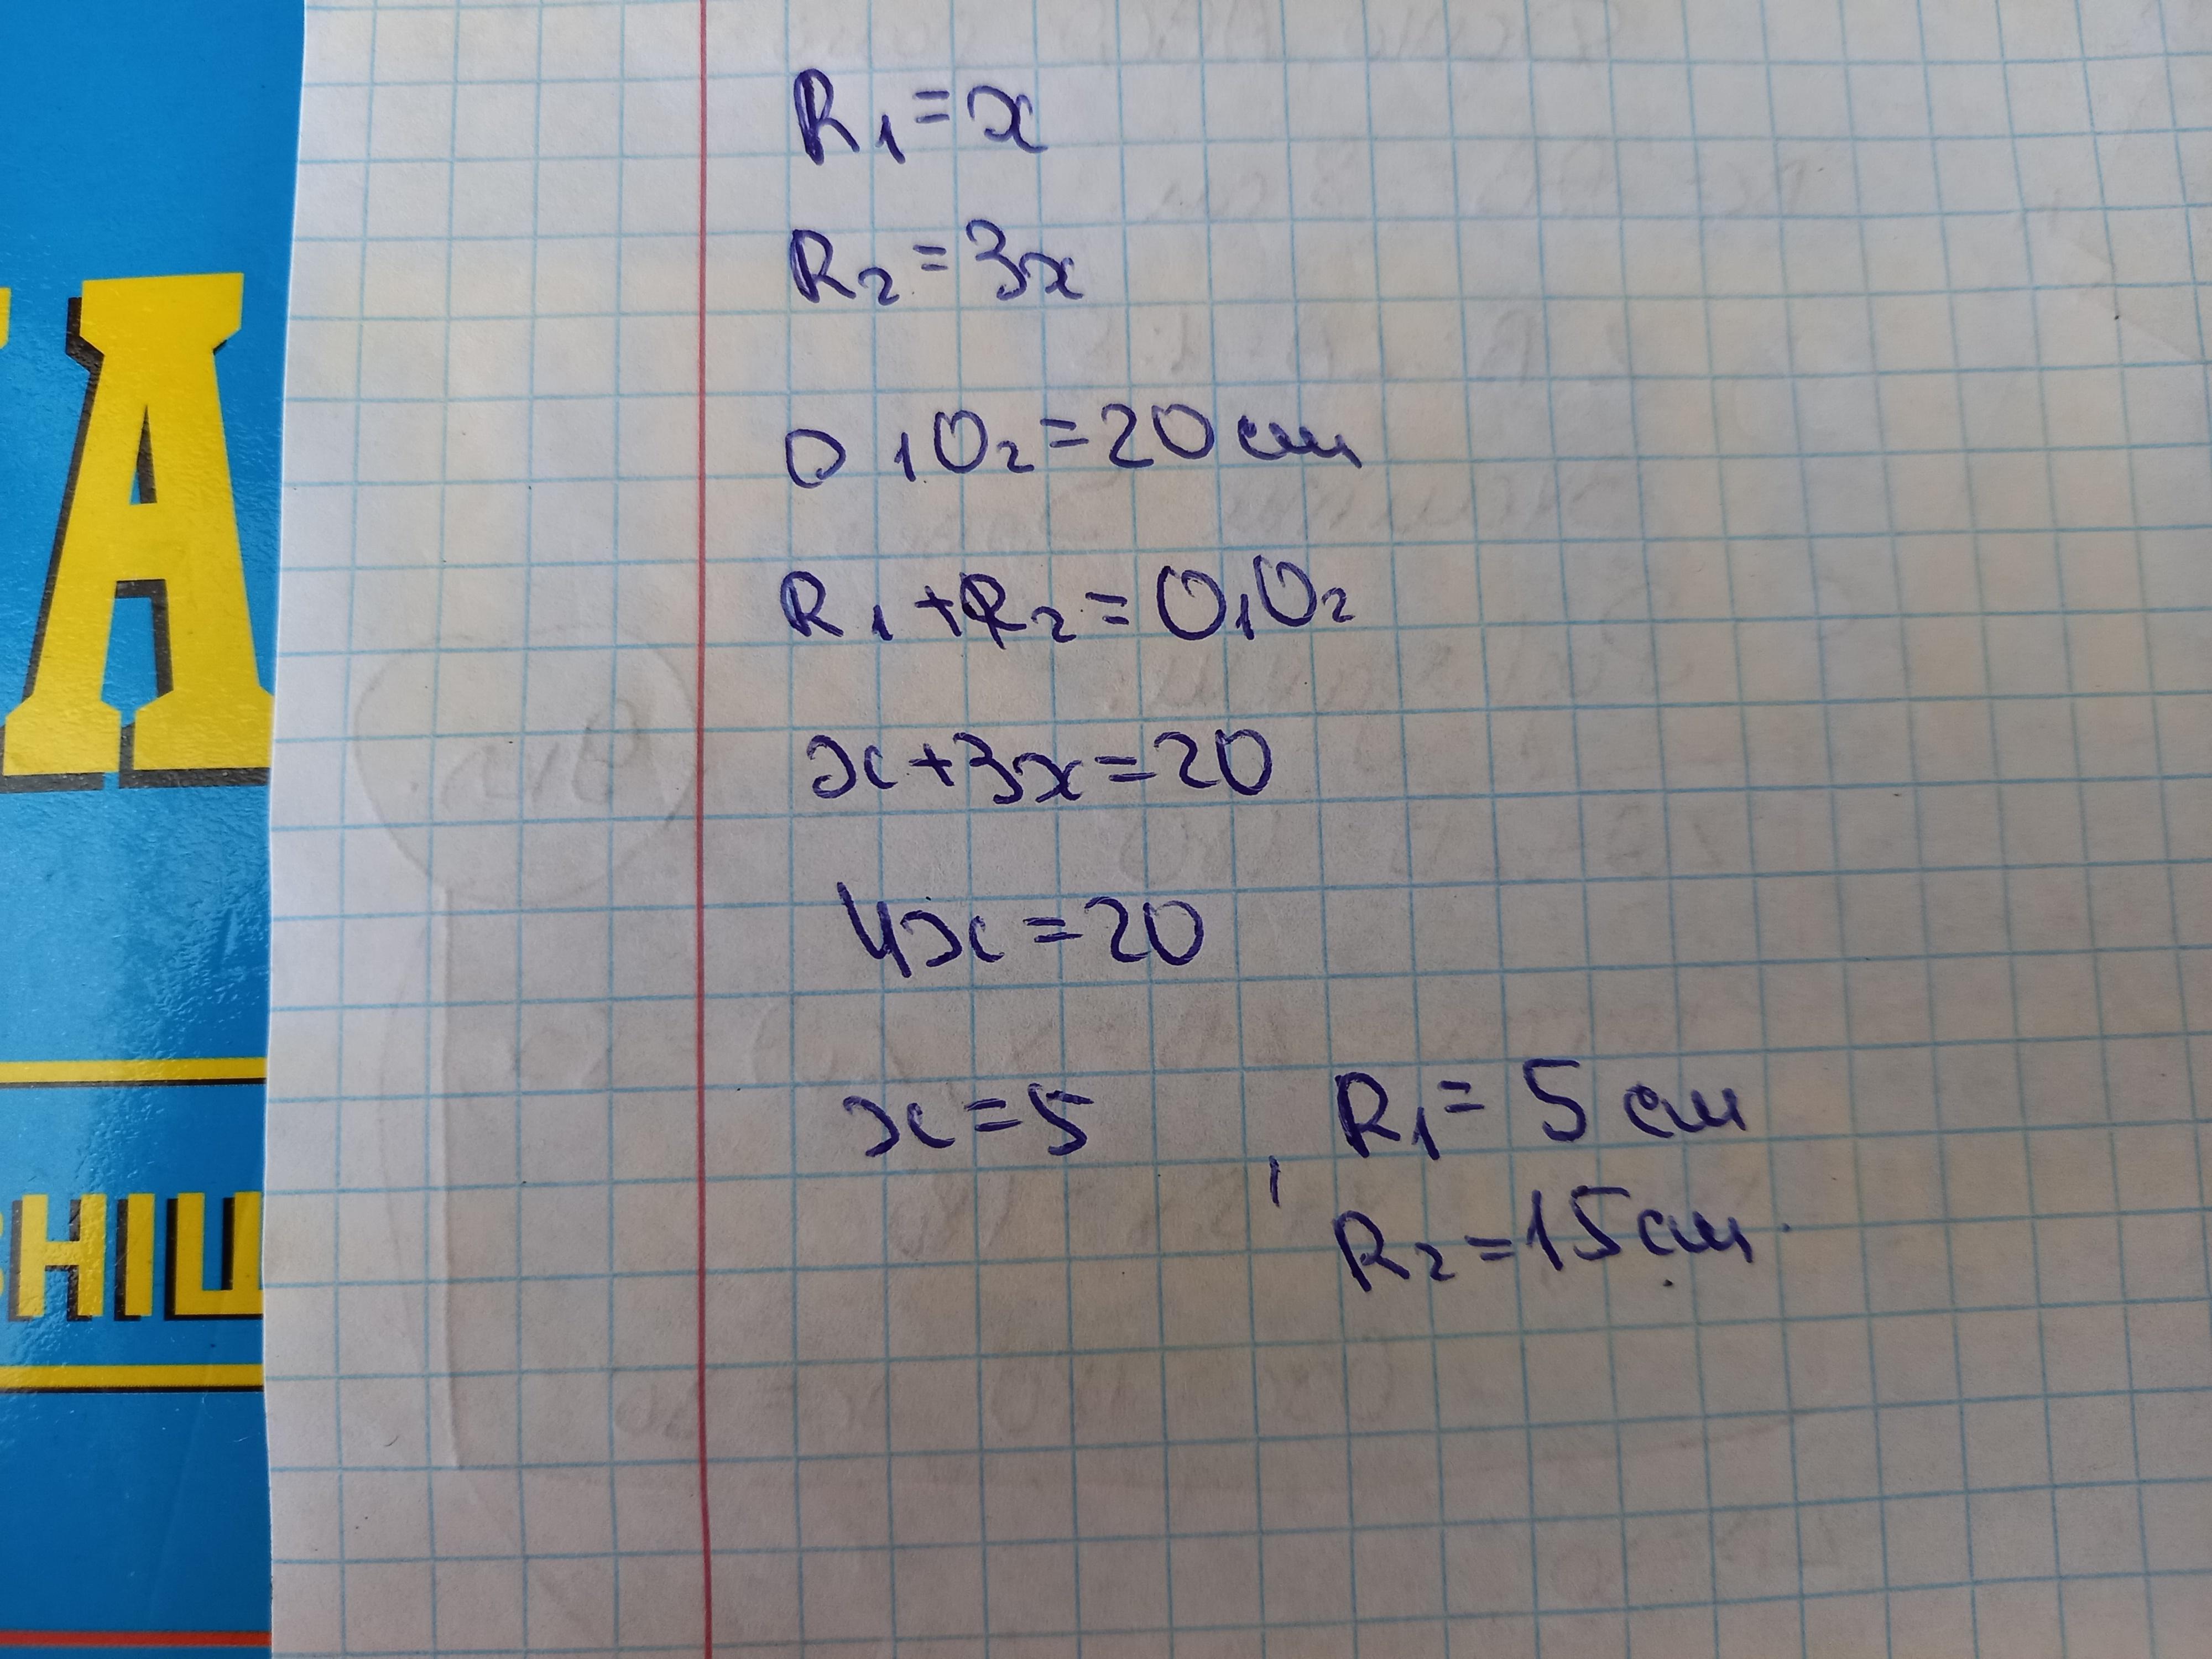 А
ВНІШ
R₁ = x
R₂ = 3x
O₁O₂ = 20 см
R₁ + R₂ = O₁O₂
x + 3x = 20
4x = 20
x = 5 , R₁ = 5 см
R₂ = 15 см.